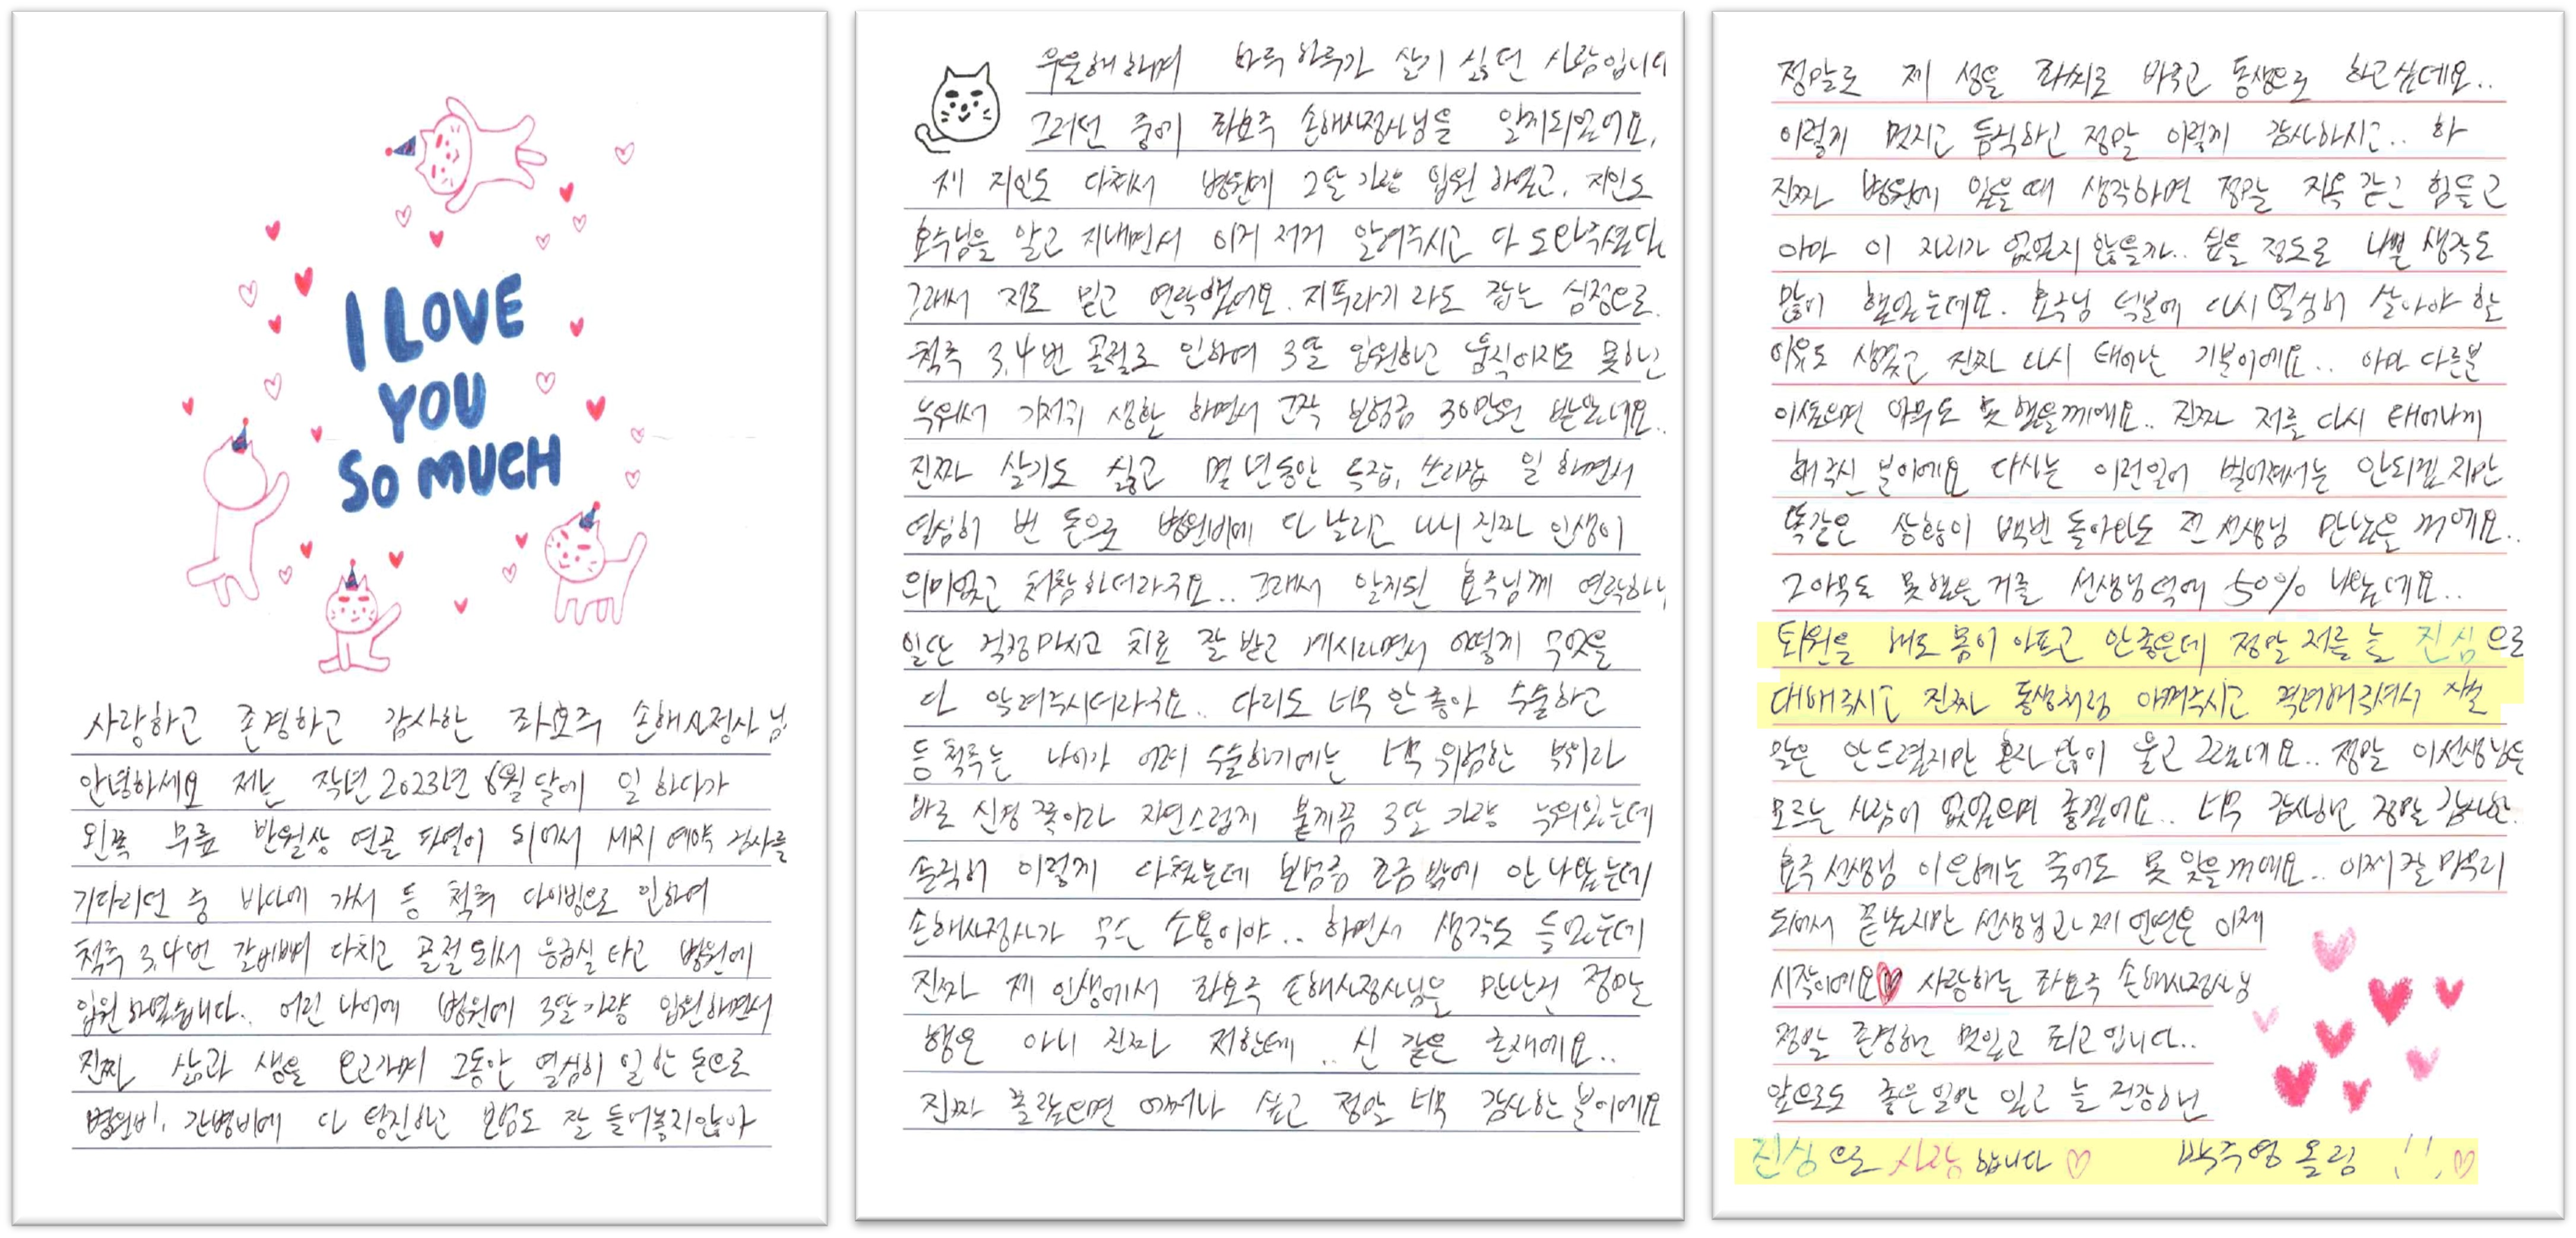 I LOVE
YOU
SO MUCH
사랑하고 존경하고 감사한 좌효주 손해사정사님
안녕하세요 저는 작년 2023년 6월달에 일 하다가
왼쪽 무릎 반월상 연골 파열이 되어서 예약 검사를
기다리던 중 바다에 가서 등 척추 다이빙으로 인하여
척추 3,4번 갈비뼈 다치고 골절되서 응급실 타고 병원에
입원하였습니다.. 어린 나이에 병원에 3달가량 입원하면서
진짜 삶과 생을 오고가며 그동안 열심히 일 한 돈으로
병원비, 간병비에 다 탕진하고 보험도 잘 들어놓지않아
우울해하며 하루하루가 살기 싫던 사람입니다
그러던 중에 좌효주 손해사정사님을 알게되었어요.
제 지인도 다쳐서 병원에 2달가량 입원 하였고, 지인도
효주님을 알고 지내면서 이거 저거 알려주시고 다 도와주셨다
그래서 저도 믿고 연락했어요. 지푸라기 라도 잡는 심정으로.
척추 3,4번 골절로 인하여 3달 입원하고 움직이지도 못하고
누워서 기저귀 생활 하면서 고작 보험금 30만원 받았네요..
진짜 살기도 싫고 몇 년동안 투잡, 쓰리잡 일 하면서
열심히 번 돈으로 병원비에 다 날리고 나니 진짜 인생이
의미없고 처참하더라구요.. 그래서 알게된 효주님께 연락하니
일단 걱정마시고 치료 잘 받고 계시라면서 어떻게 무엇을
다 알려주시더라구요.. 다리도 너무 안 좋아 수술하고
등 척추는 나이가 어려 수술하기에는 너무 위험한 부위라
바로 신경 쪽이라 자연스럽게 붙게끔 3달 가량 누워있는데
솔직히 이렇게 다쳤는데 보험금 조금 밖에 안 나왔는데
손해사정사가 무슨 소용이야.. 하면서 생각도 들었는데
진짜 제 인생에서 좌효주 손해사정사님을 만난건 정말
행운 아니 진짜 저한테 .. 신 같은 존재에요..
진짜 몰랐으면 어쩌나 싶고 정말 너무 감사한 분이에요
정말로 제 성을 좌씨로 바꾸고 동생으로 하고싶은데요..
이렇게 멋지고 듬직하고 정말 이렇게 감사하시고.. 하
진짜 병원에 있을때 생각하면 정말 지옥 같고 힘들고
아마 이 자리가 없었지 않을까.. 싶을 정도로 나쁜 생각도
많이 했었는데요. 효주님 덕분에 다시 열심히 살아야 할
이유도 생겼고 진짜 다시 태어난 기분이에요.. 아마 다른분
이셨으면 아무도 못 했을꺼에요.. 진짜 저를 다시 태어나게
해주신 분이에요 다시는 이런일이 벌어져서는 안되겠지만
똑같은 상황이 백번 돌아와도 전 선생님 만났을 꺼에요..
그 아무도 못했을 거를 선생님덕에 50% 나왔네요..
퇴원을 해도 몸이 아프고 안좋은데 정말 저를 늘 진심으로
대해주시고 진짜 동생처럼 아껴주시고 격려해주셔서 사실
말은 안드렸지만 혼자 많이 울고 그랬네요.. 정말 이선생님을
모르는 사람이 없었으면 좋겠어요.. 너무 감사하고 정말 감사한.
효주 선생님 이 은혜는 죽어도 못 잊을꺼에요.. 이제 잘 마무리
되어서 끝났지만 선생님과 제 인연은 이제
시작이에요 사랑하는 좌효주 손해사정사님
정말 존경하고 멋있고 최고입니다..
앞으로도 좋은 일만 있고 늘 건강하고
진심으로 사랑합니다♡ 박주영 올림 !!♡